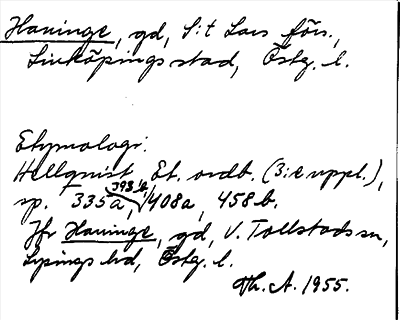 Haninge, gd, S:t Lars förs.,
Linköpings stad, Östg. l.
Etymologi:
Hellquist, Et. ordb. (3:e uppl.),
sp. 335a, 393b, 408a, 458b.
Jfr Haninge, gd, V. Tollstads sn,
Lysings hd, Östg. l.
Th. A. 1955.